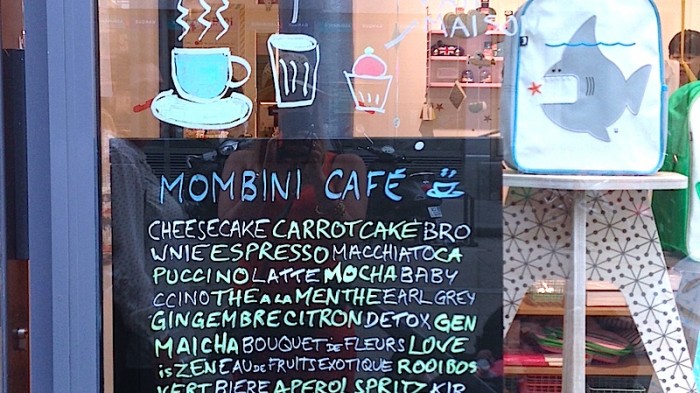 MAISON
MOMBINI CAFÉ
CHEESECAKE CARROTCAKE BRO
WNIE ESPRESSO MACCHIATO CA
PUCCINO LATTE MOCHA BABY
CCINO THE A LA MENTHE EARL GREY
GINGEMBRE CITRON DETOX GEN
MAICHA BOUQUET DE FLEURS LOVE
is ZEN EAU DE FRUITS EXOTIQUE ROOIBOS
VERT BIERE APEROL SPRITZ KIR